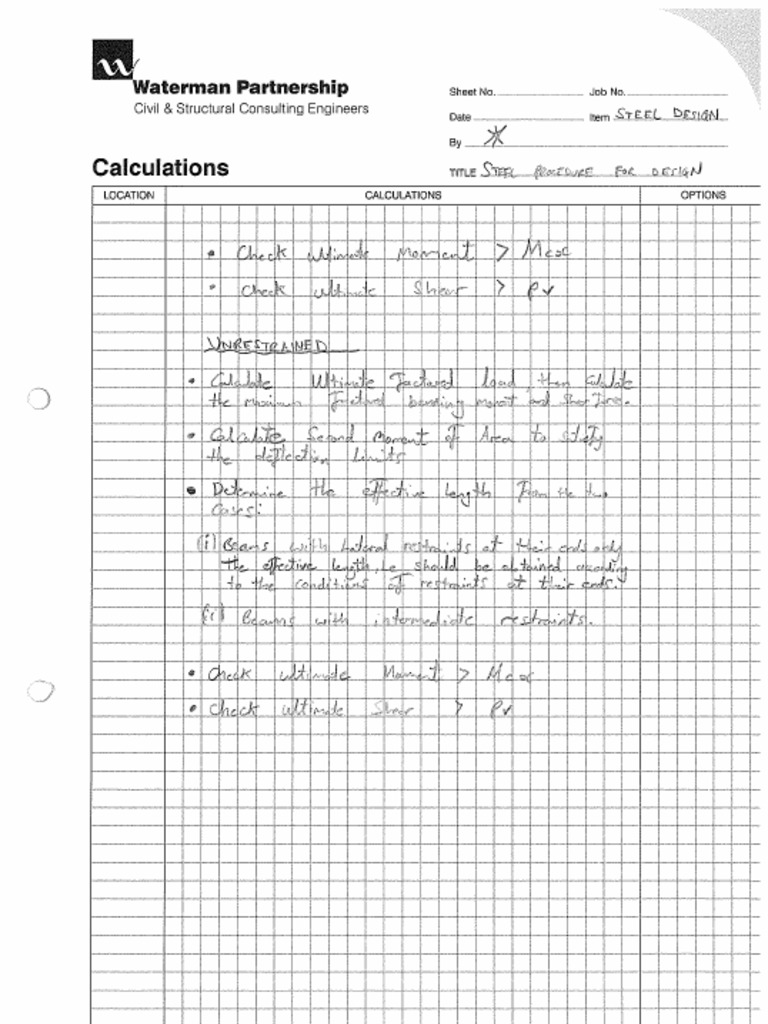 W
Waterman Partnership
Civil & Structural Consulting Engineers
Sheet No. Job No.
Date Item STEEL DESIGN
By
Calculations
TITLE STEEL PROCEDURE FOR DESIGN
LOCATION CALCULATIONS OPTIONS
• Check ultimate Moment > Mcx
• Check ultimate Shear > Pv
UNRESTRAINED
• Calculate Ultimate Factored load, then Calculate
the maximum Factored bending moment and Shear Force.
• Calculate Second Moment of Area to satisfy
the deflection limits
• Determine the effective length from the two
cases:
(i) Beams with Lateral restraints at their ends only
the effective length, Le should be obtained according
to the conditions of restraints at their ends.
(ii) Beams with intermediate restraints.
• Check ultimate Moment > Mcx
• Check ultimate Shear > Pv